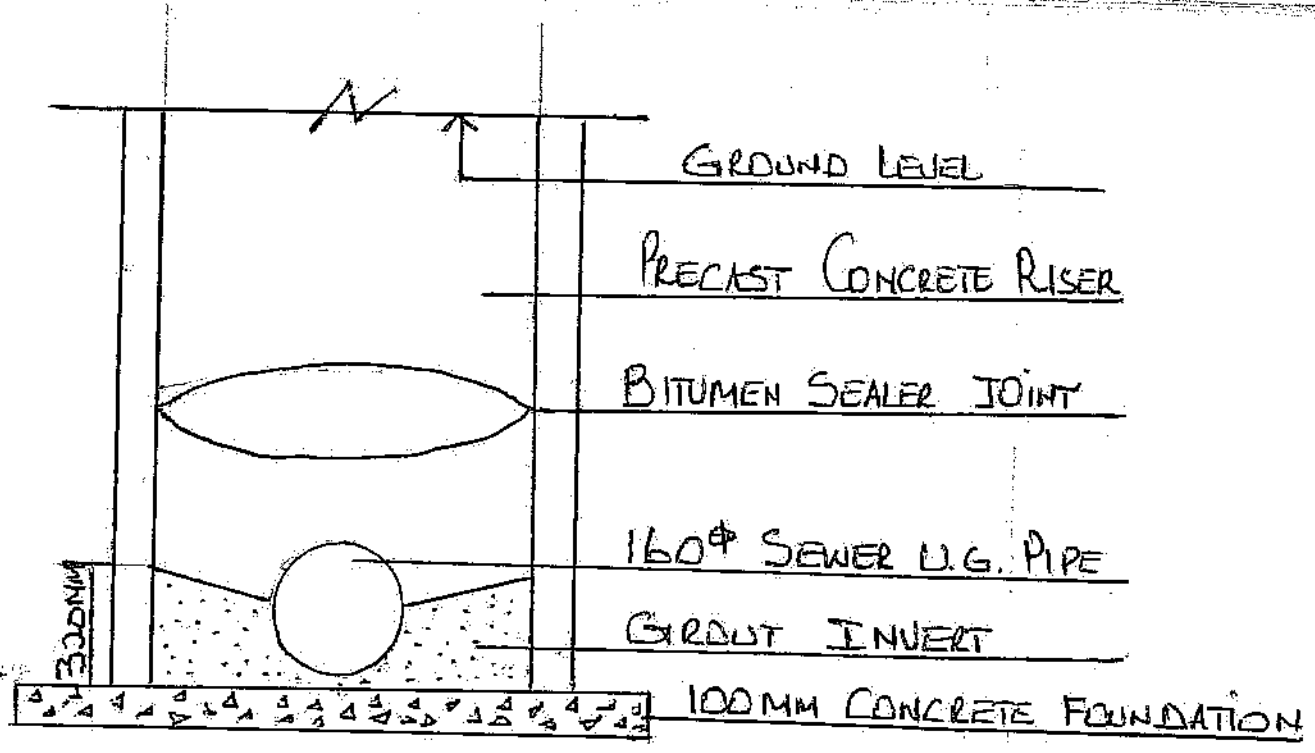 GROUND LEVEL
PRECAST CONCRETE RISER
BITUMEN SEALER JOINT
160⌀ SEWER U.G. PIPE
GROUT INVERT
320MM
100MM CONCRETE FOUNDATION